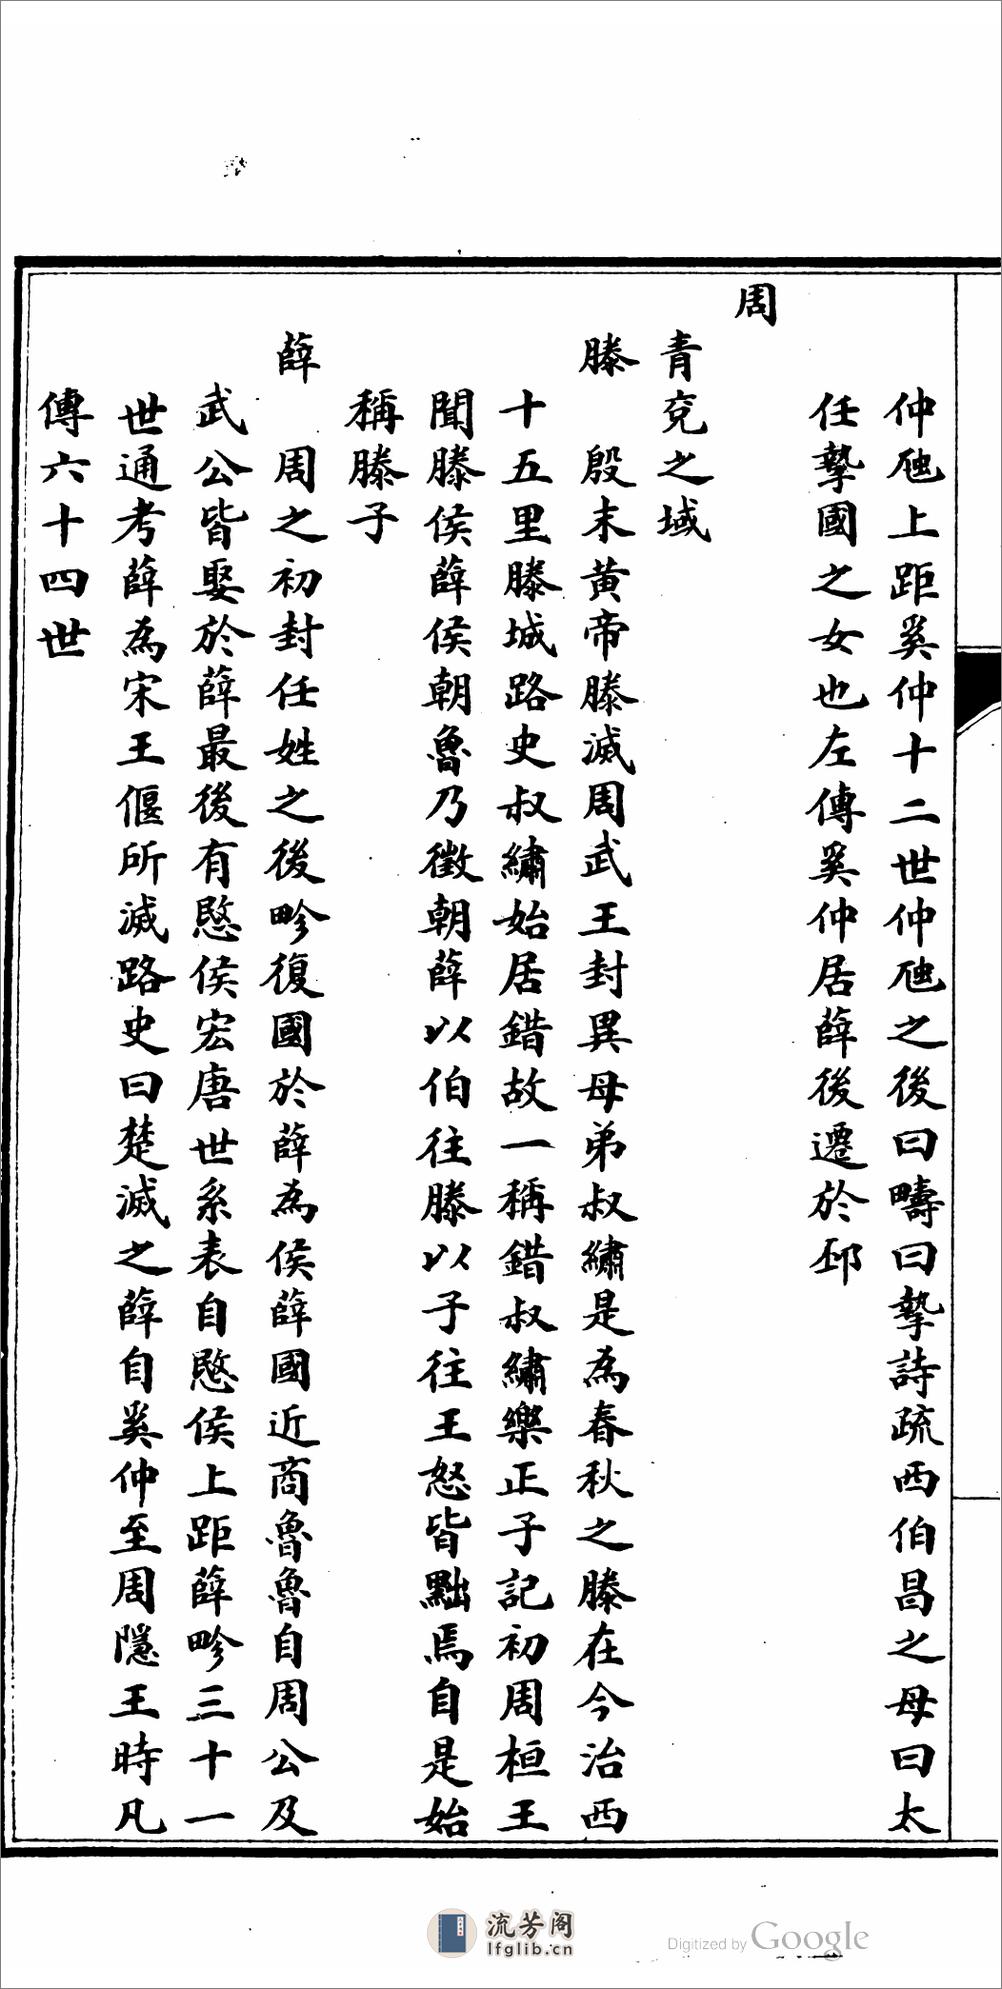 仲虺上距奚仲十二世仲虺之後曰疇曰摯詩疏西伯昌之母曰太
任摯國之女也左傳奚仲居薛後遷於邳
周
青兗之域
滕　殷末黃帝滕滅周武王封異母弟叔繡是為春秋之滕在今治西
十五里滕城路史叔繡始居錯故一稱錯叔繡樂正子記初周桓王
聞滕侯薛侯朝魯乃徵朝薛以伯往滕以子往王怒皆黜焉自是始
稱滕子
薛　周之初封任姓之後畛復國於薛為侯薛國近商魯魯自周公及
武公皆娶於薛最後有愍侯宏唐世系表自愍侯上距薛畛三十一
世通考薛為宋王偃所滅路史曰楚滅之薛自奚仲至周隱王時凡
傳六十四世
流芳阁
lfglib.cn
Digitized by Google